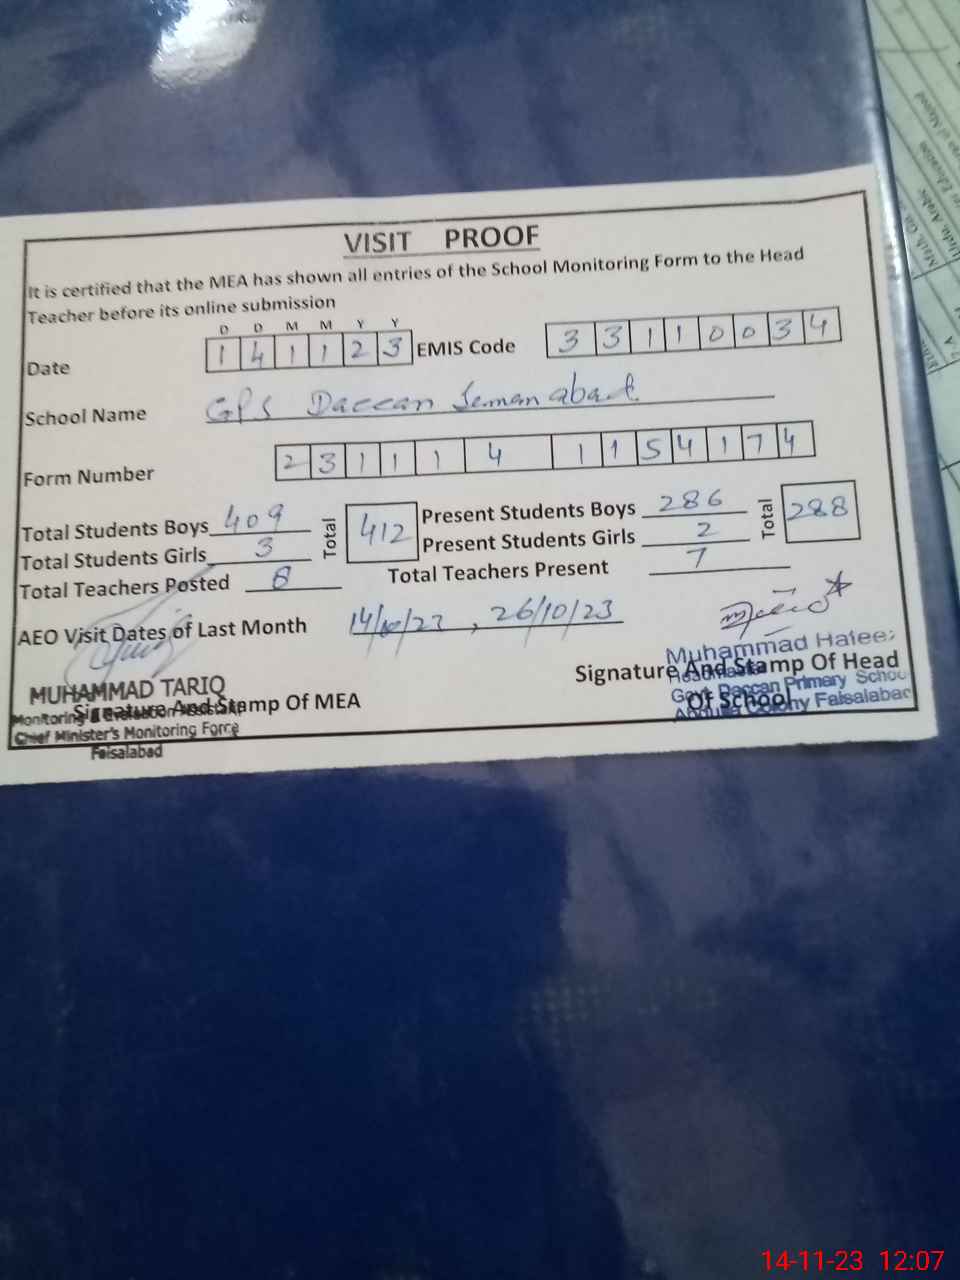 VISIT PROOF
It is certified that the MEA has shown all entries of the School Monitoring Form to the Head
Teacher before its online submission
D D M M Y Y
Date 1 4 1 1 2 3 EMIS Code 3 3 1 1 0 0 3 4
School Name GPS Daccan Semanabad
Form Number 2 3 1 1 1 4 1 1 5 4 1 7 4
Total Students Boys 409 Total 412 Present Students Boys 286 Total 288
Total Students Girls 3 Present Students Girls 2
Total Teachers Posted 8 Total Teachers Present 7
AEO Visit Dates of Last Month 14/10/23 , 26/10/23
Muhammad Hafeez
Signature And Stamp Of Head
Headmaster
Govt. Daccan Primary School
Of School
Abdulla Colony Faisalabad
MUHAMMAD TARIQ
Signature And Stamp Of MEA
Monitoring & Evaluation Assistant
Chief Minister's Monitoring Force
Faisalabad
14-11-23 12:07